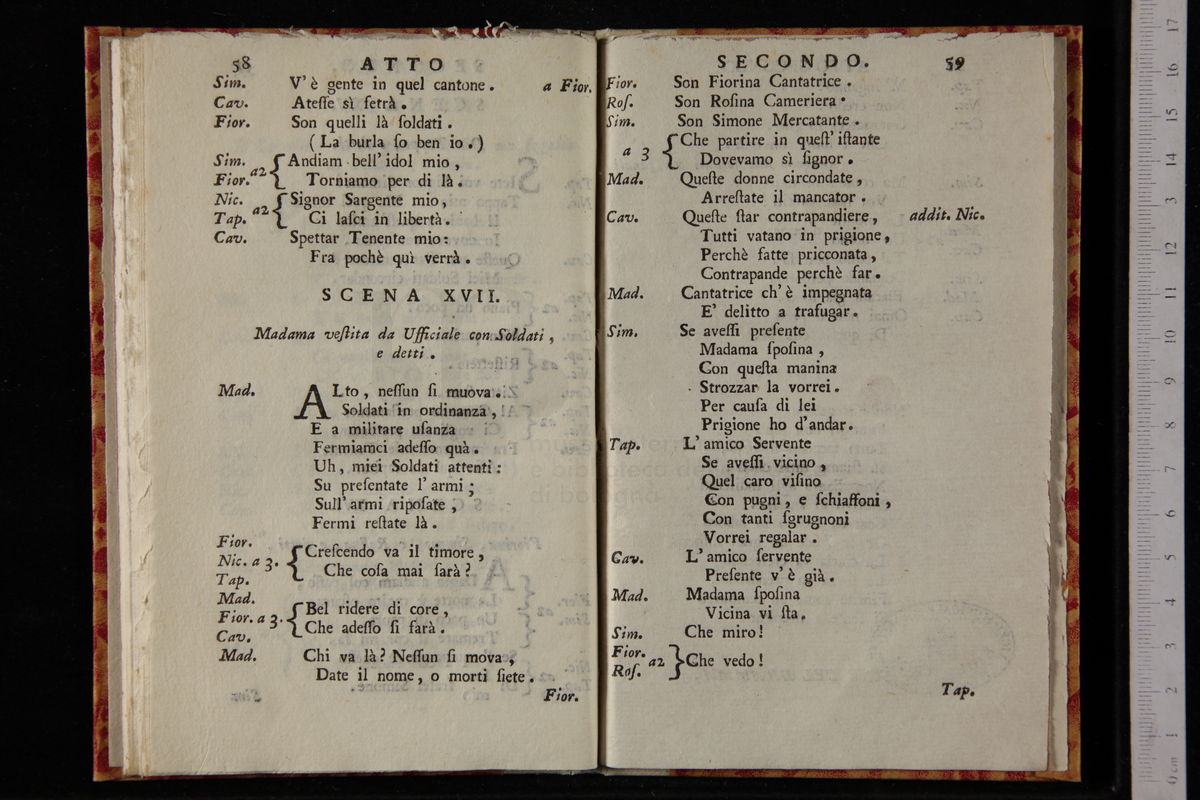 58 ATTO
Sim. V' è gente in quel cantone. a Fior.
Cav. Ateſſe sì ſetrà.
Fior. Son quelli là ſoldati.
(La burla ſo ben io.)
Sim. Andiam bell' idol mio,
Fior. a2 Torniamo per di là.
Nic. Signor Sargente mio,
Tap. a2 Ci laſci in libertà.
Cav. Spettar Tenente mio:
Fra pochè quì verrà.
SCENA XVII.
Madama veſtita da Ufficiale con Soldati,
e detti.
Mad. ALto, neſſun ſi muova.
Soldati in ordinanza,
E a militare uſanza
Fermiamci adeſſo quà.
Uh, miei Soldati attenti:
Su preſentate l' armi;
Sull' armi ripoſate,
Fermi reſtate là.
Fior.
Nic. a 3. Creſcendo va il timore,
Tap. Che coſa mai ſarà?
Mad.
Fior. a 3. Bel ridere di core,
Cav. Che adeſſo ſi farà.
Mad. Chi va là? Neſſun ſi mova,
Date il nome, o morti ſiete.
Fior.
SECONDO. 59
Fior. Son Fiorina Cantatrice.
Roſ. Son Roſina Cameriera.
Sim. Son Simone Mercatante.
a 3 Che partire in queſt' iſtante
Dovevamo sì ſignor.
Mad. Queſte donne circondate,
Arreſtate il mancator.
Cav. Queſte ſtar contrapandiere, addit. Nic.
Tutti vatano in prigione,
Perchè fatte pricconata,
Contrapande perchè far.
Mad. Cantatrice ch' è impegnata
E' delitto a trafugar.
Sim. Se aveſſi preſente
Madama ſpoſina,
Con queſta manina
Strozzar la vorrei.
Per cauſa di lei
Prigione ho d'andar.
Tap. L' amico Servente
Se aveſſi vicino,
Quel caro viſino
Con pugni, e ſchiaffoni,
Con tanti ſgrugnoni
Vorrei regalar.
Cav. L' amico ſervente
Preſente v' è già.
Mad. Madama ſpoſina
Vicina vi ſta.
Sim. Che miro!
Fior.
Roſ. a2 Che vedo!
Tap.